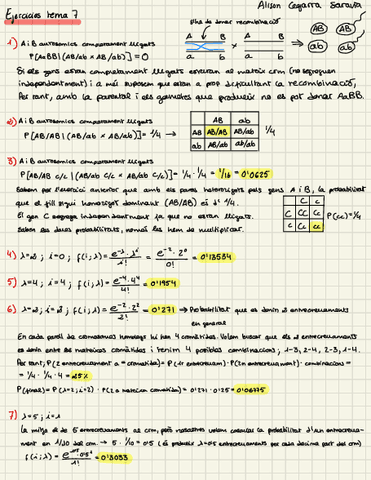 Alison Cegarra Saravia
Exercicios tema 7
Ha de donar recombinació
A B A B
×
a b a b
AB AB
ab ab
1) A i B autosomics completament lligats
P[AaBB|(AB/ab x AB/ab)] = 0
Si els gens estan completament lligats estaran al mateix crm (no segreguen
independentment) i a més suposem que estan a prop dificultant la recombinació,
Per tant, amb la parental i els gametes que produeix no es pot donar AaBB.
2) A i B autosomics completament lligats
P[AB/AB|(AB/ab x AB/ab)] = 1/4 →
AB ab
AB AB/AB AB/ab
ab AB/ab ab/ab
1/4
3) A i B autosomics completament lligats
P[AB/AB c/c|(AB/ab C/c x AB/ab C/c)] = 1/4 · 1/4 = 1/16 = 0'0625
Sabem per l'exercici anterior que amb els pares heterozigots pels gens A i B, la probabilitat
que el fill sigui homozigot dominant (AB/AB) és d'1/4.
El gen C segrega independentment ja que no estan lligats.
Sabem les dues probabilitats, només les hem de multiplicar.
C c
C CC Cc
c Cc cc
P(cc) = 1/4
4) λ=2 ; i=0 ; f(i;λ) = e^-λ · λ^i / i! = e^-2 · 2^0 / 0! = 0'13534
5) λ=4 ; i=4 ; f(i;λ) = e^-4 · 4^4 / 4! = 0'1954
6) λ=2 ; i=2 ; f(i;λ) = e^-2 · 2^2 / 2! = 0'271 → Probabilitat que es donin 2 entrecreuaments
en general
En cada parell de cromosomes homolegs hi han 4 cromàtides. Volem buscar que els 2 entrecreuaments
es donin entre les mateixes cromàtides i tenim 4 posibles combinacions; 1-3, 2-4, 2-3, 1-4.
Per tant, P(2 entrecreuament a = cromatides) = P(1r entrecreuam) · P(2n entrecreuament) · combinacions =
= 1/4 · 1/4 · 4 = 25%
P(final) = P(λ=2; i=2) · P(2 a mateixa cromàtida) = 0'271 · 0'25 = 0'06775
7) λ=5 ; i=1
La mitja és de 5 entrecreuaments al crm, però nosaltres volem calcular la probabilitat d'1 un entrecreua-
ment en 1/10 del crm → 5 · 1/10 = 0'5 (Es produeix λ=0'5 entrecreuaments per cada decima part del crm)
f(i;λ) = e^-0'5 · 0'5^1 / 1! = 0'3033